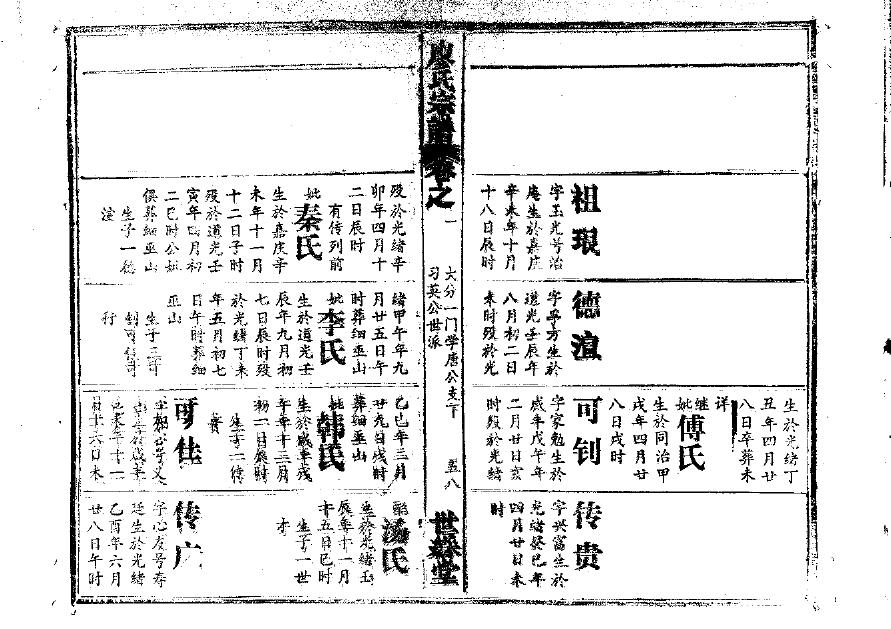 廖氏宗谱卷之一
大分一门学唐公支下
习英公世派
五八
世彩堂
祖
字玉光号治
庵生於嘉庆
辛未年十月
十八日辰时
殁於光绪辛
卯年四月十
二日辰时
有传列前
妣秦氏
生於嘉庆辛
未年十一月
十二日子时
殁於道光壬
寅年四月初
二巳时公妣
俱葬细巫山
生子一德
渲
德渲
字学方生於
道光壬辰年
八月初二日
未时殁於光
绪甲午年九
月廿五日午
时葬细巫山
妣李氏
生於道光壬
辰年九月初
七日辰时殁
於光绪丁未
年五月初七
日午时葬细
巫山
生子三可
钊可佳可
行
生於光绪丁
丑年四月廿
八日卒葬未
详
继妣傅氏
生於同治甲
戌年四月廿
八日戌时
可钊
字家勉生於
咸丰戊午年
二月廿日亥
时殁於光绪
乙巳年三月
廿九日戌时
葬细巫山
妣韩氏
生於咸丰戊
午年十二月
初二日辰时
生子一传
贵
可佳
月十六日未
传贵
字兴富生於
光绪癸巳年
四月廿日未
时
配汤氏
生於光绪壬
辰年十一月
十五日巳时
生子一世
才
传广
字心友号寿
廷生於光绪
乙酉年六月
廿八日午时